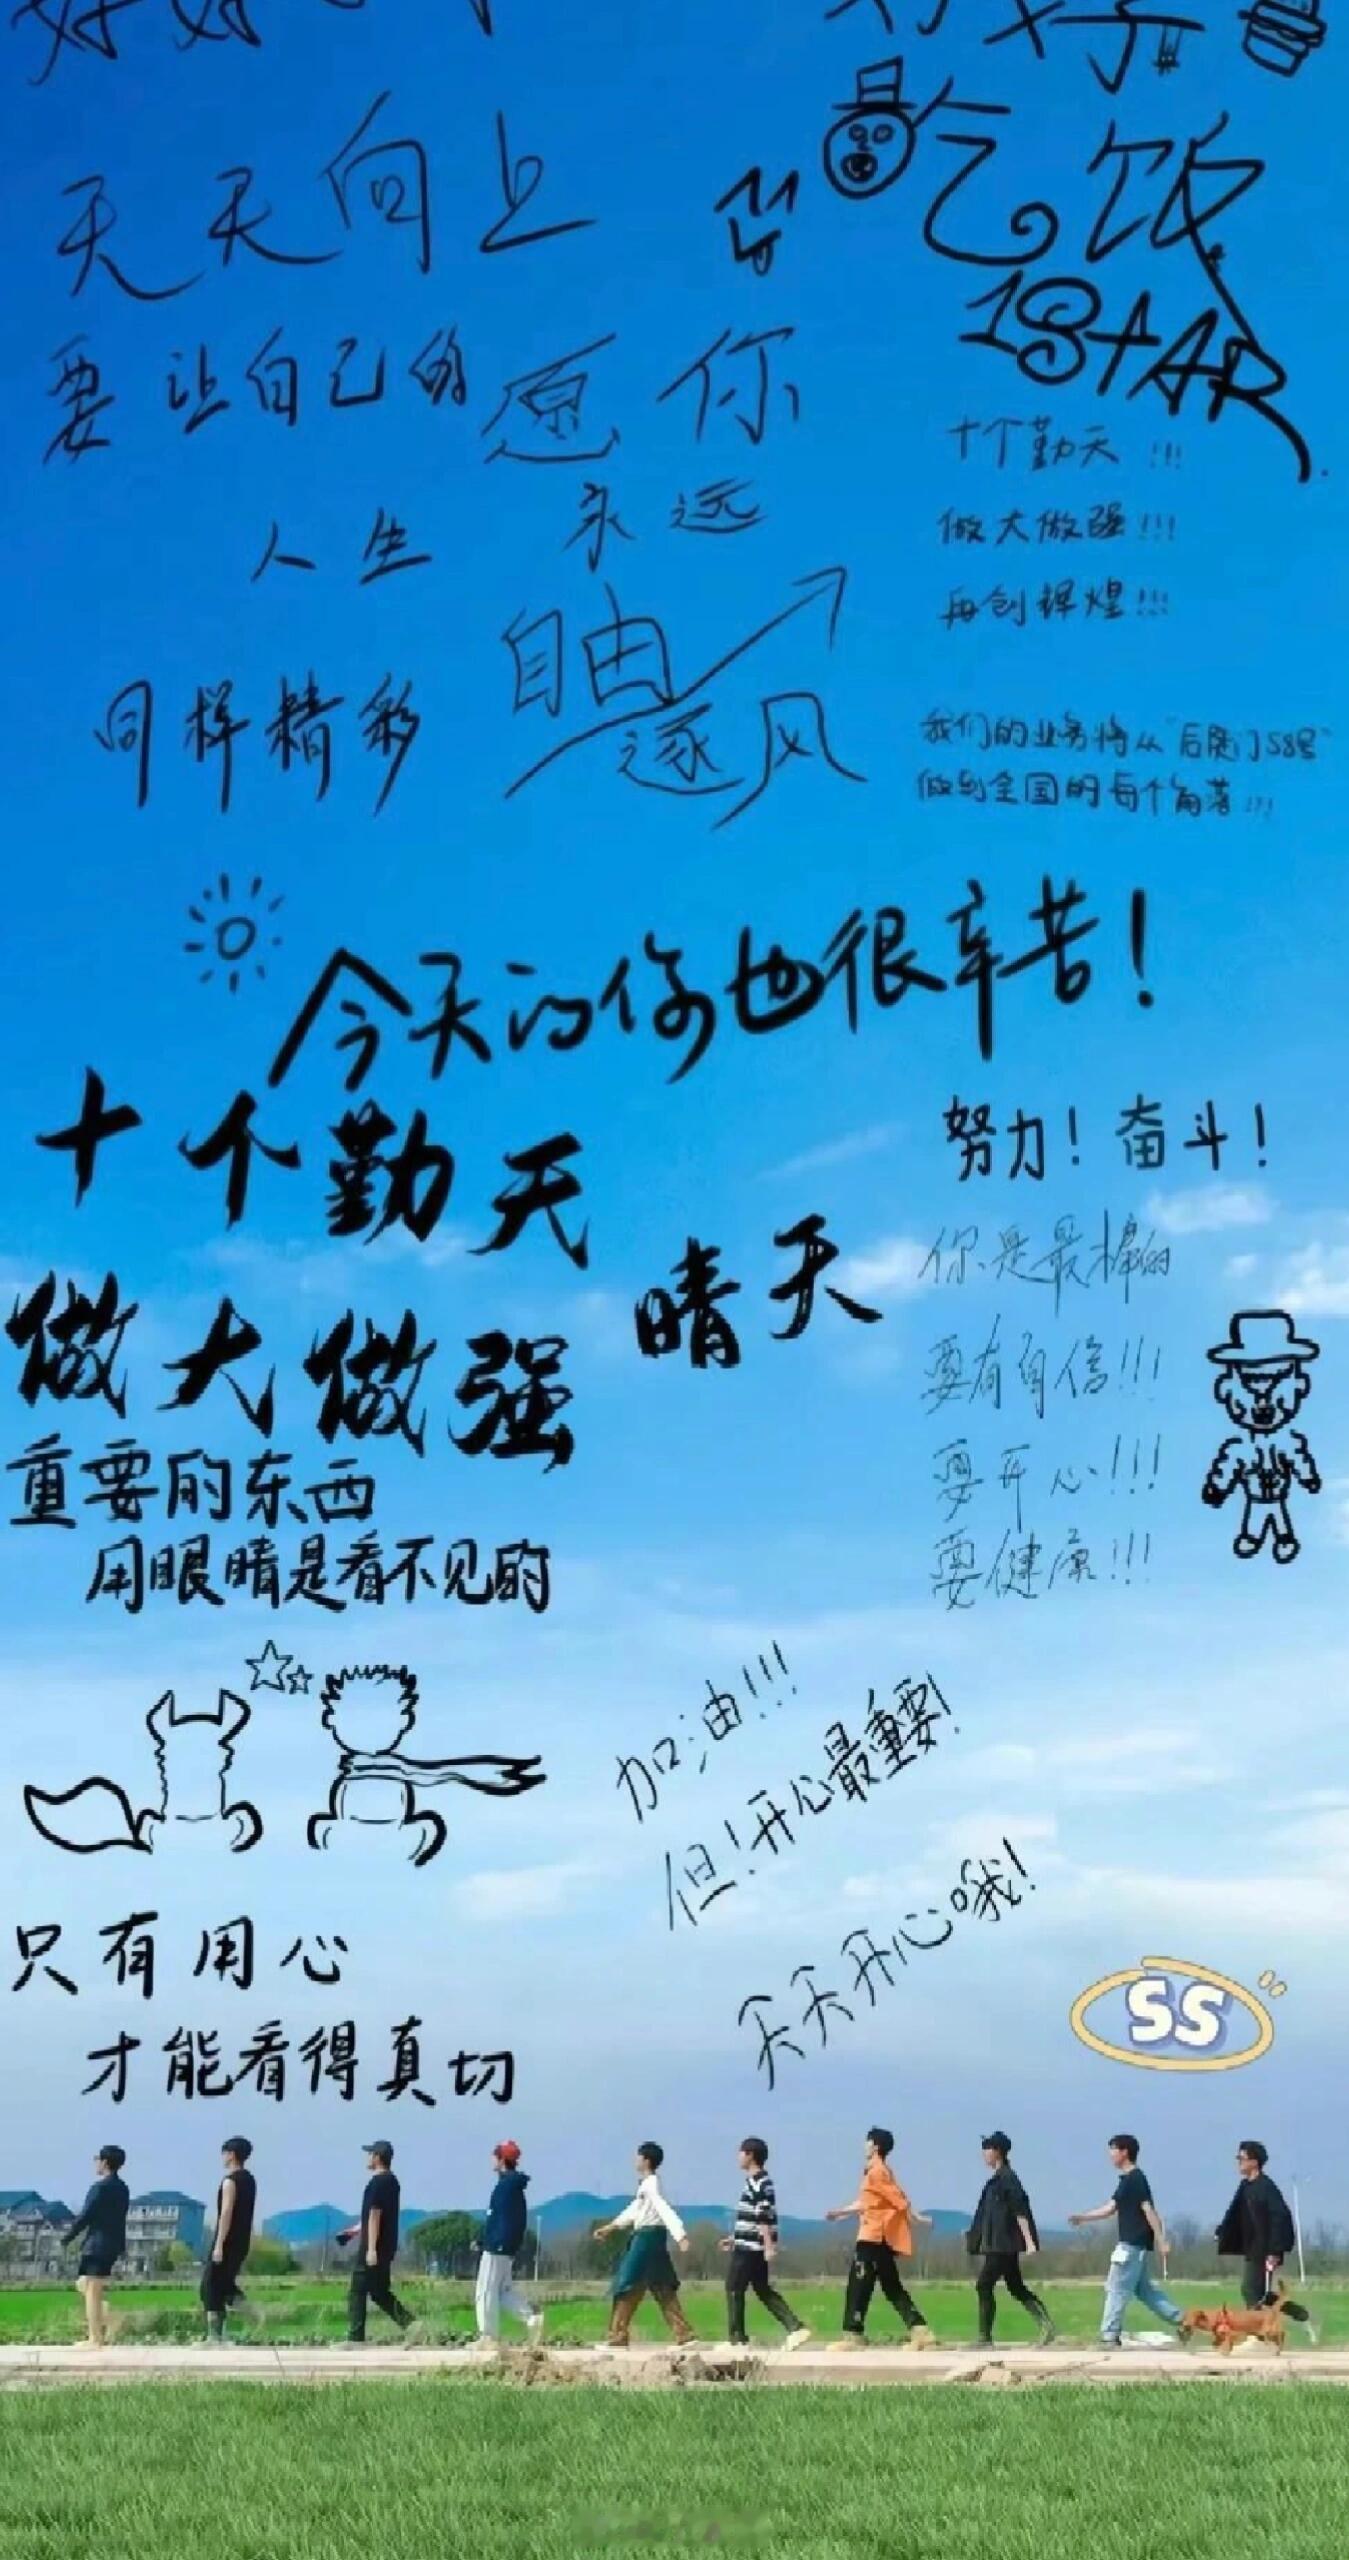 天天向上
要让自己的
人生
同样精彩
愿你
永远
自由
逐风
好好
吃饭
1STAR
十个勤天!!!
做大做强!!!
再创辉煌!!!
我们的业务将从“后陡门58号”
做到全国的每个角落!!!
今天的你也很辛苦!
十个勤天
做大做强
晴天
努力!奋斗!
你是最棒的
要有自信!!!
要开心!!!
要健康!!!
重要的东西
用眼睛是看不见的
只有用心
才能看得真切
加油!!!
但!开心最重要!
天天开心哦!
SS